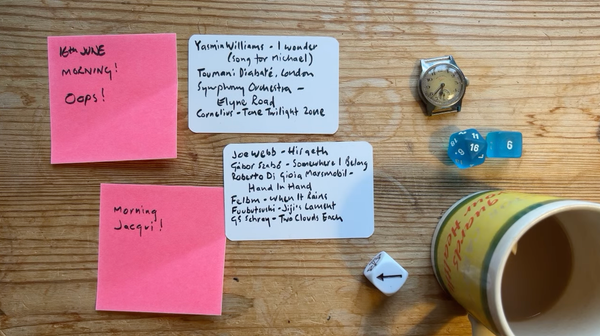 16th JUNE
MORNING!
OOPS!
Yasmin Williams - I wonder
(Song for Michael)
Toumani Diabaté, London
Symphony Orchestra -
Elyne Road
Cornelius - Tone Twilight Zone
Joe Webb - Hiraeth
Gábor Szabó - Somewhere I Belong
Roberto Di Gioia Marsmobil -
Hand In Hand
Felbm - When It Rains
Fuubutsushi - Jiji's Lament
GS Schray - Two Clouds Each
Morning
Jacqui!
16
6